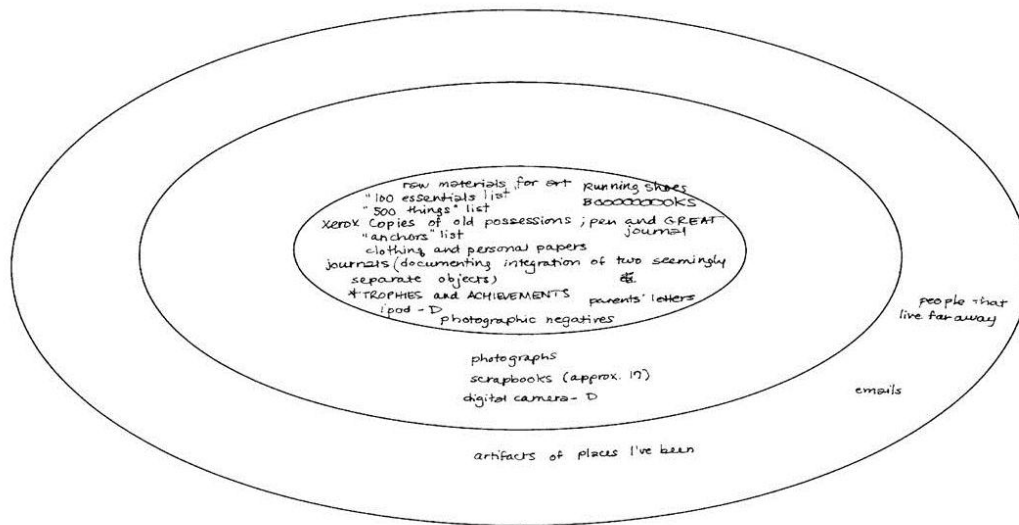 raw materials for art
Running Shoes
"100 essentials list
Booooooooks
"500 things" list
xerox copies of old possessions ; pen and GREAT
journal
"anchors" list
clothing and personal papers
journals (documenting integration of two seemingly
separate objects)
* TROPHIES and ACHIEVEMENTS
parents' letters
ipod - D
photographic negatives
people that
live far away
photographs
scrapbooks (approx. 17)
digital camera - D
emails
artifacts of places I've been